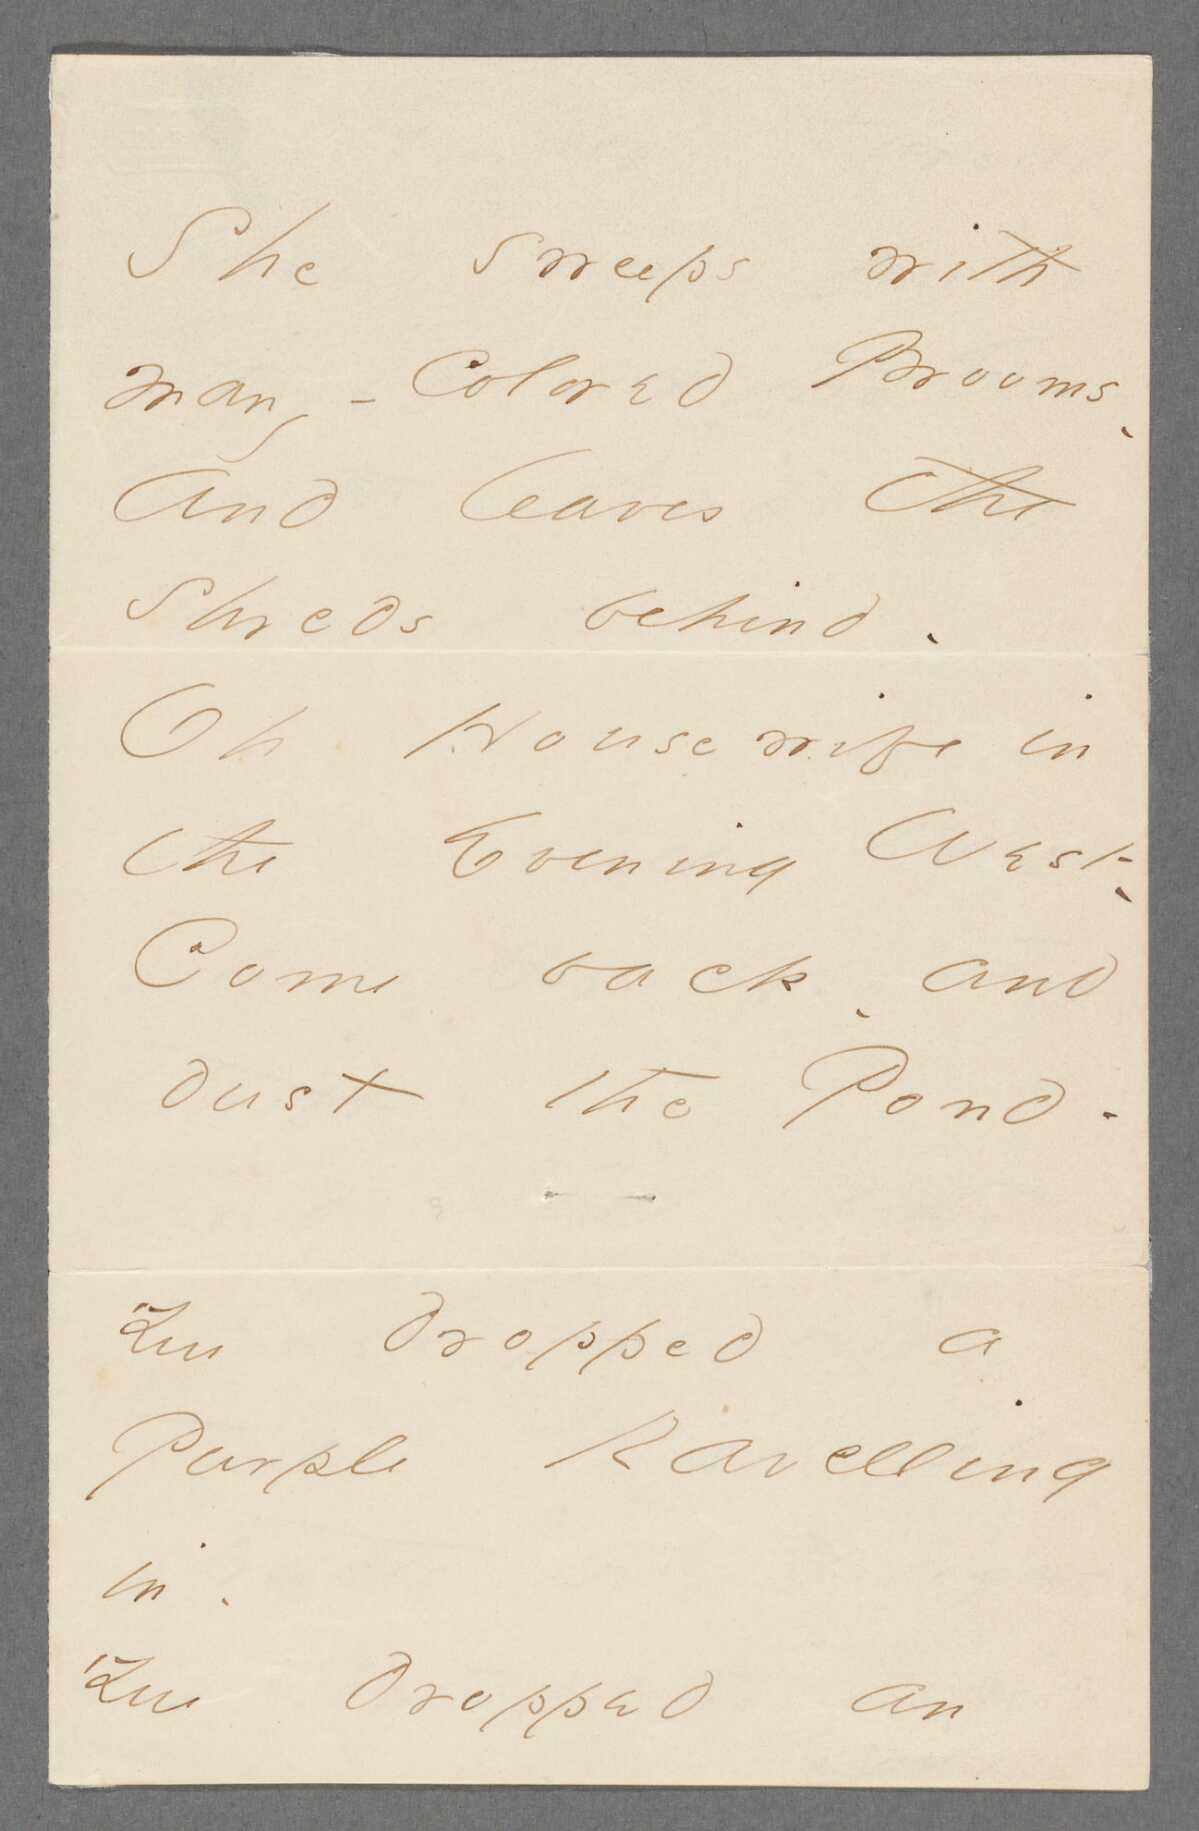 She sweeps with
many-Colored Brooms,
And leaves the
Shreds behind.
Oh Housewife in
the Evening West,
Come back, and
dust the Pond.
You dropped a
Purple Ravelling
in.
You dropped an